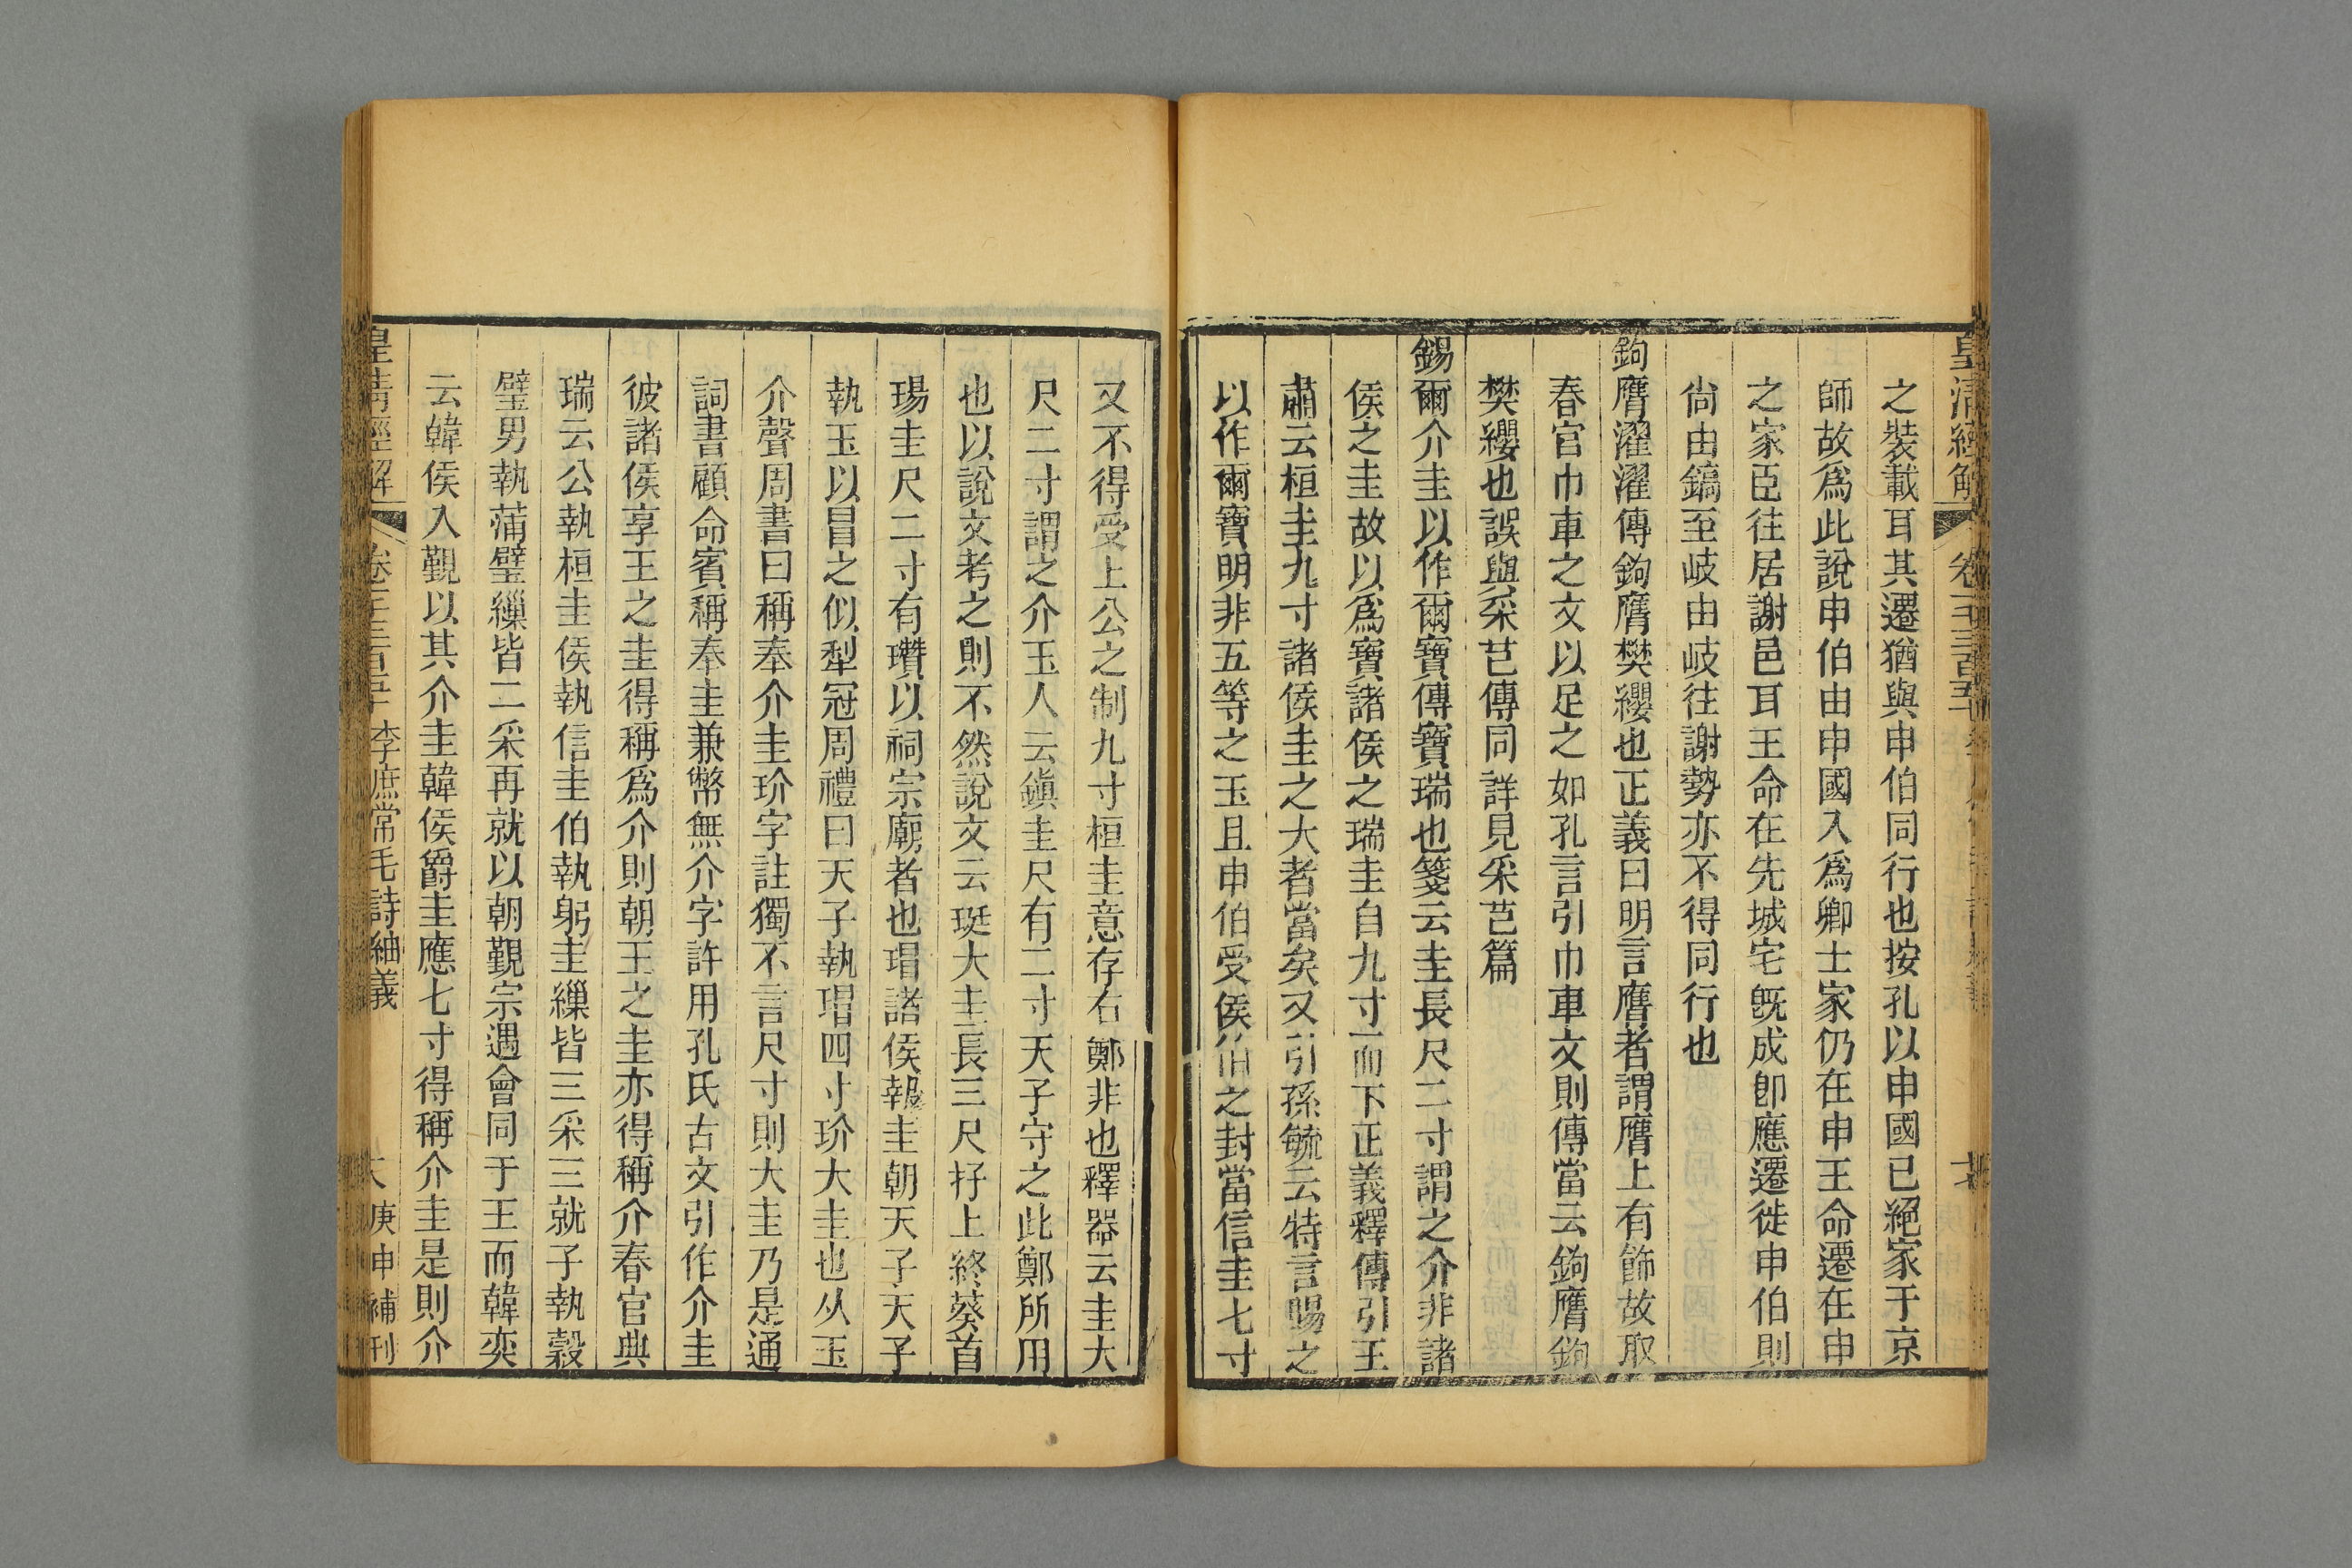 皇清經解
之裝載耳其遷猶與申伯同行也按孔以申國已絕家于京
師故爲此說申伯由申國入爲卿士家仍在申王命遷在申
之家臣往居謝邑耳王命在先城宅旣成卽應遷徙申伯則
尙由鎬至岐由岐往謝勢亦不得同行也
鉤膺濯濯傳鉤膺樊纓也正義曰明言膺者謂膺上有飾故取
春官巾車之文以足之如孔言引巾車文則傳當云鉤膺鉤
樊纓也誤與采芑傳同詳見采芑篇
錫爾介圭以作爾寶傳寶瑞也箋云圭長尺二寸謂之介非諸
侯之圭故以爲寶諸侯之瑞圭自九寸而下正義釋傳引王
肅云桓圭九寸諸侯圭之大者當矣又引孫毓云特言賜之
以作爾寶明非五等之玉且申伯受侯伯之封當信圭七寸
又不得受上公之制九寸桓圭意存右鄭非也釋器云圭大
尺二寸謂之介玉人云鎭圭尺有二寸天子守之此鄭所用
也以說文考之則不然說文云珽大圭長三尺抒上終葵首
瑒圭尺二寸有瓚以祠宗廟者也瑁諸侯執圭朝天子天子
執玉以冒之似犁冠周禮曰天子執瑁四寸玠大圭也从玉
介聲周書曰稱奉介圭玠字註獨不言尺寸則大圭乃是通
詞書顧命賓稱奉圭兼幣無介字許用孔氏古文引作介圭
彼諸侯享王之圭得稱爲介則朝王之圭亦得稱介春官典
瑞云公執桓圭侯執信圭伯執躬圭繅皆三采三就子執穀
璧男執蒲璧繅皆二采再就以朝覲宗遇會同于王而韓奕
云韓侯入覲以其介圭韓侯爵圭應七寸得稱介圭是則介
皇清經解 卷一千三百五十 李庶常毛詩紬義 大 庚申補刊